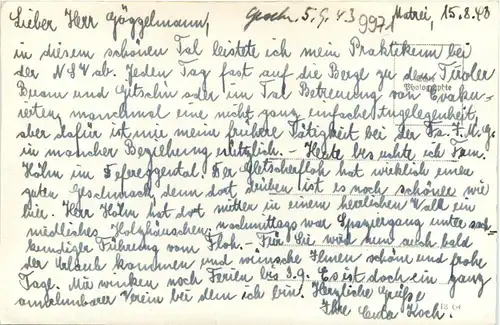 Lieber Herr Göggelmann,
Geschr. 5.9.43
9971
Matrei, 15.8.43
in diesem schönen Tal leistete ich mein Praktikum bei
der NSV ab. Jeden Tag fast auf die Berge zu den Tiroler
Buam und Gitschn oder im Tal Betreuung von Evakuierten,
manchmal eine nicht ganz einfache Angelegenheit,
aber dafür ist mir meine frühere Tätigkeit bei der Fa. F.M.G.
in mancher Beziehung nützlich. - Heute besuchte ich Fam.
Höhn im Defereggental. Der Gletscherfloh hat wirklich einen
guten Geschmack, denn dort drüben ist es noch schöner wie
hier. Herr Höhn hat dort mitten in einem herrlichen Wald ein
niedliches Holzhäuschen, nachmittags war Spaziergang unter sach-
kundiger Führung vom Floh. - Für Sie wird nun auch bald
der Urlaub kommen und wünsche Ihnen schöne und frohe
Tage. Mir winken noch Ferien bis 1.9. Es ist doch ein ganz
annehmbarer Verein bei dem ich bin. Herzliche Grüße
Ihre Cuta Koch.
Photographie